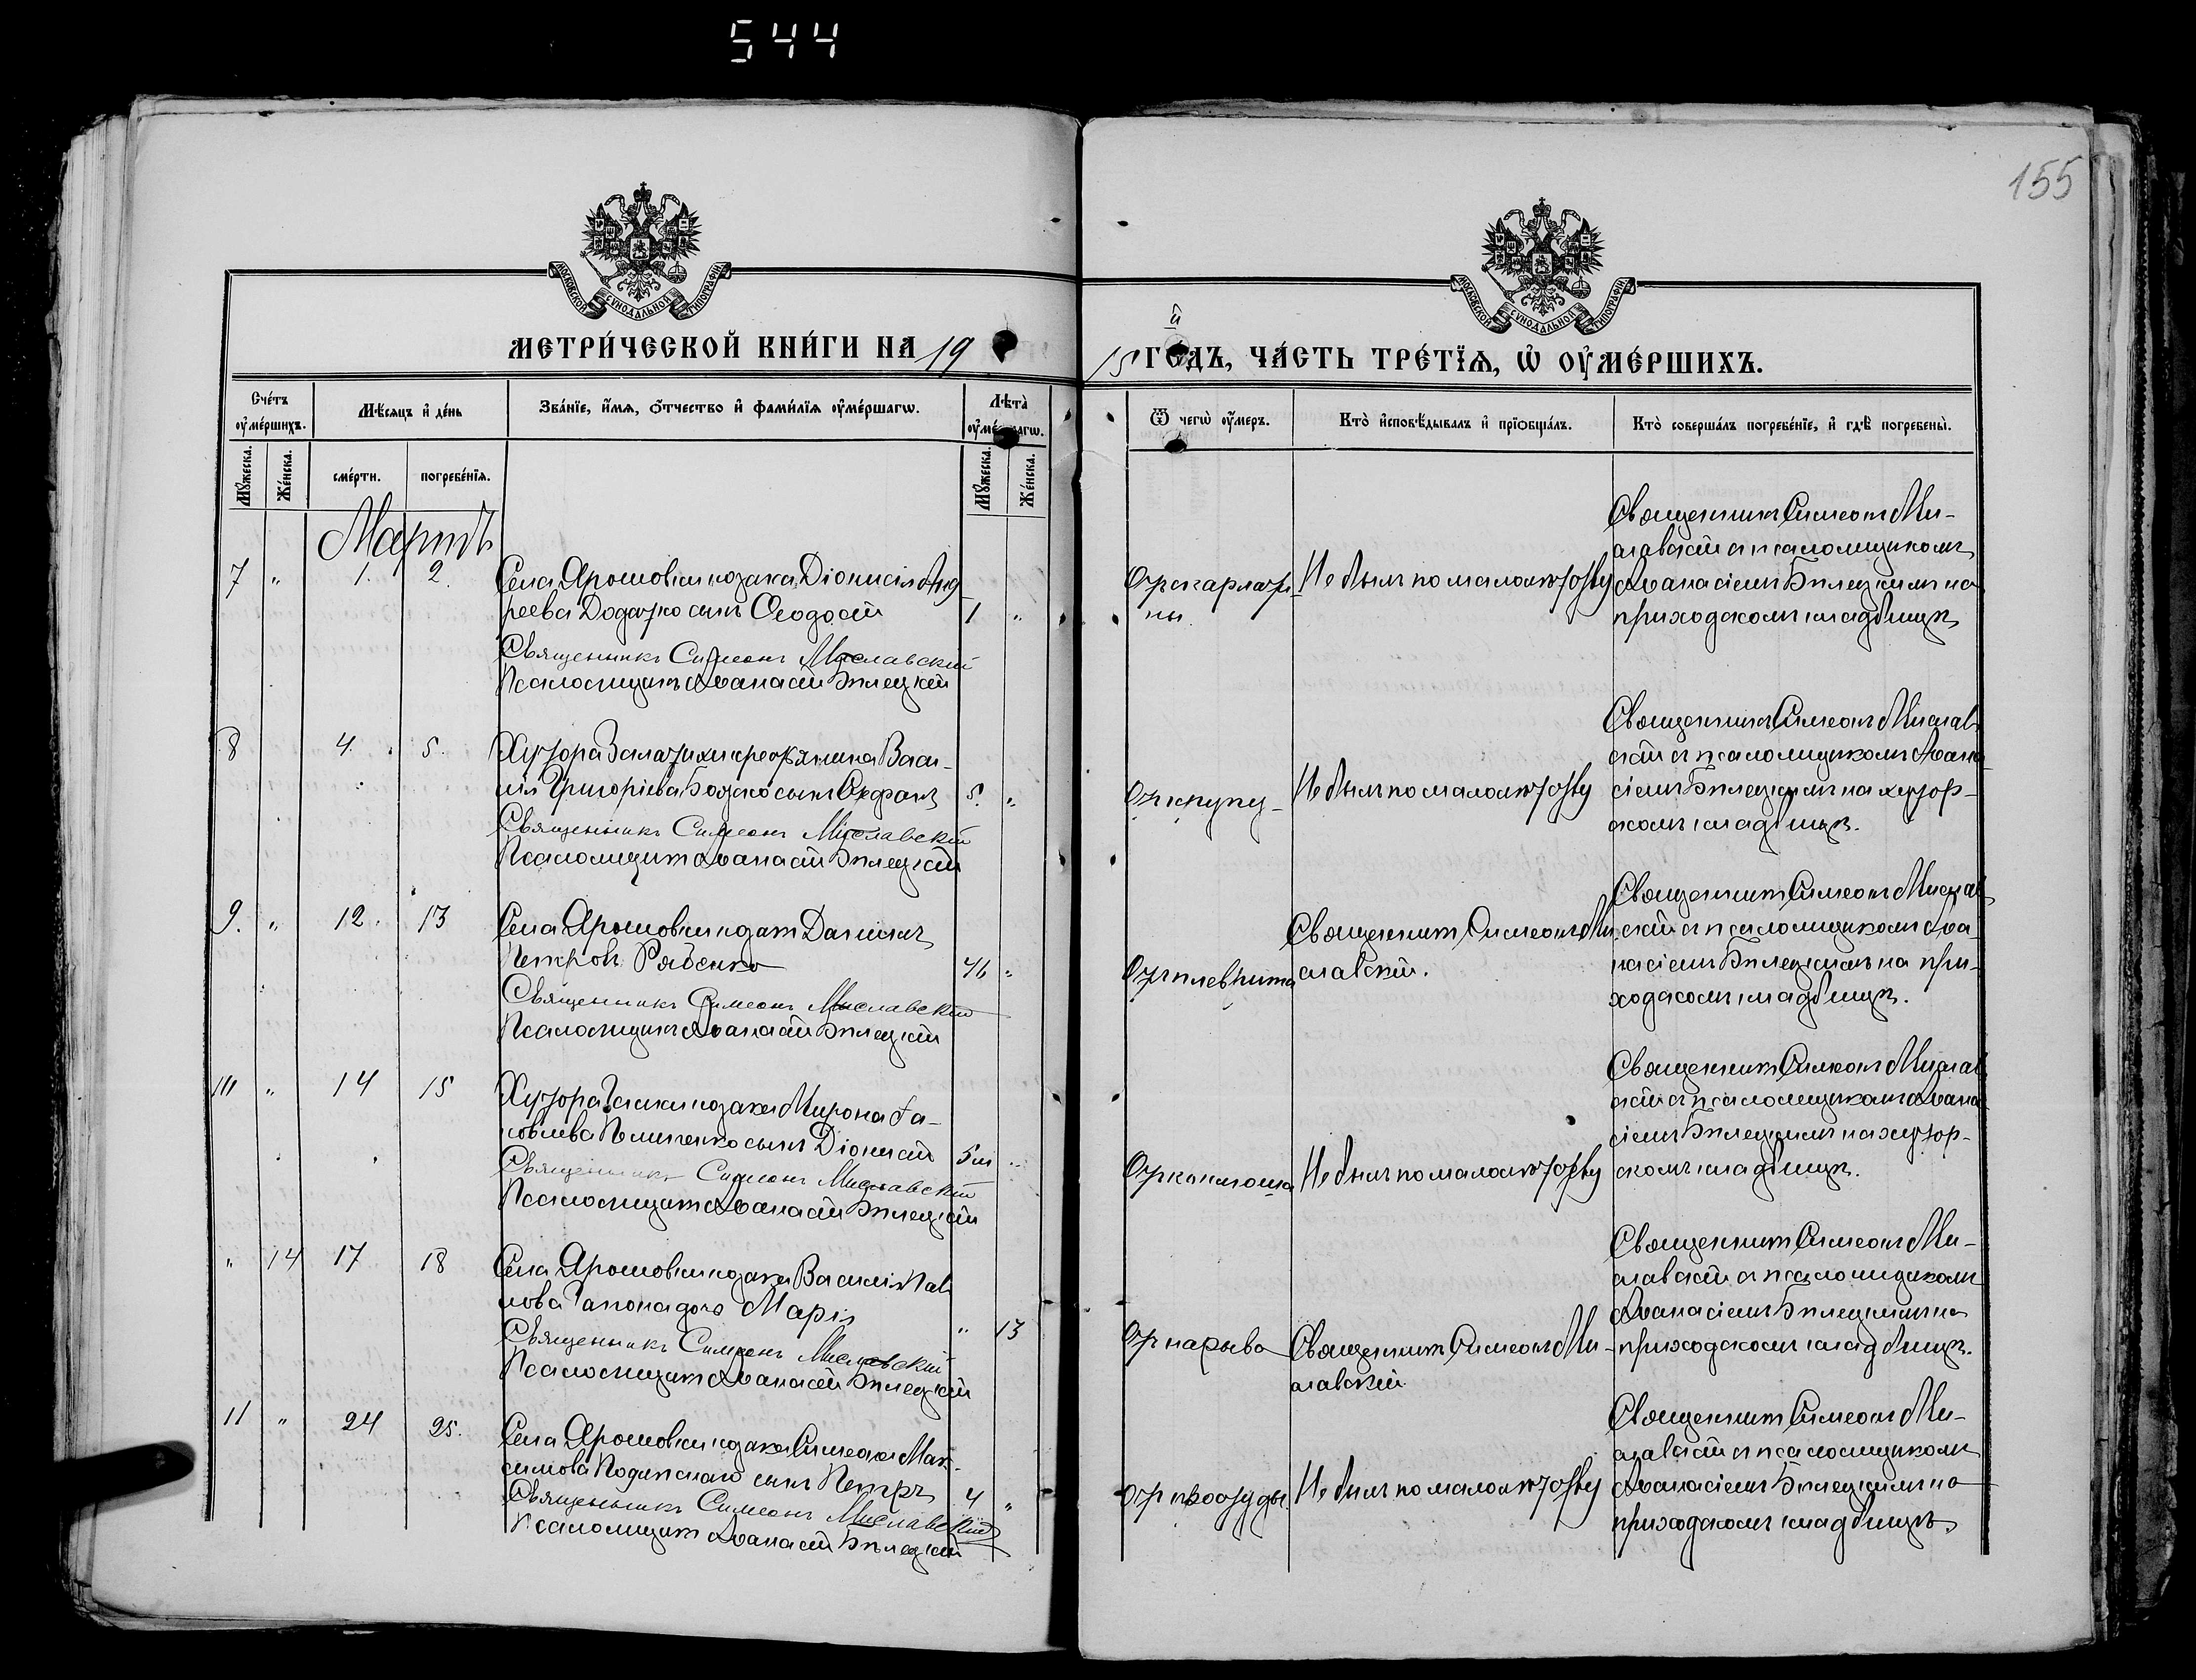 544
155
МОСКОВСКОЙ СѴНОДАЛЬНОЙ ТИПОГРАФІИ
МОСКОВСКОЙ СѴНОДАЛЬНОЙ ТИПОГРАФІИ
МЕТРИ́ЧЕСКОЙ КНИ́ГИ НА 19
15 й ГОДЪ, ЧА́СТЬ ТРЕ́ТЇѦ, Ѡ҆ ОУ҆МЕ́РШИХЪ.
Счéтъ оу҆мéршихъ.
Мѣ́сѧцъ и҆ дéнь
Звáнїе, и҆́мѧ, ѻ҆́тчество и҆ фамѝлїѧ оу҆мéршагѡ.
Лѣ́та оу҆мéршагѡ.
Мꙋ́жеска.
Жéнска.
смéрти.
погребéнїѧ.
Мꙋ́жеска.
Жéнска.
Ѿ чегѡ̀ оу҆́меръ.
Кто̀ и҆сповѣ́дывалъ и҆ прїѡбща́лъ.
Кто̀ совершáлъ погребéнїе, и҆ гдѣ̀ погребены̀.
Мартъ
7 " 1. 2.
Села Ярошовки козака Діонисія Анд-
реева Додатко сынъ Ѳеодосій 1 "
Священникъ Симеонъ Миславскій
Псаломщикъ Аѳанасій Бѣлецкій
От скарлати-
ны.
Не былъ по малолѣтству
Священникъ Симеонъ Ми-
славскій съ псаломщикомъ
Аѳанасіемъ Бѣлецкимъ на
приходскомъ кладбищѣ
8 4. 5.
Хутора Залатихи крестьянина Васи-
лія Григоріева Бодско сынъ Стефанъ 5. "
Священникъ Симеонъ Миславскій
Псаломщикъ Аѳанасій Бѣлецкій
От крупу
Не былъ по малолѣтству
Священникъ Симеонъ Мислав-
скій съ псаломщикомъ Аѳана-
сіемъ Бѣлецкимъ на хутор-
скомъ кладбищѣ.
9. " 12. 13
Села Ярошовки козакъ Даніилъ
Петровъ Рябенко 46 "
Священникъ Симеонъ Миславскій
Псаломщикъ Аѳанасій Бѣлецкій
От плеврита
Священникъ Симеонъ Ми-
славскій.
Священникъ Симеонъ Мислав-
скій съ псаломщикомъ Аѳа-
насіемъ Бѣлецкимъ на при-
ходскомъ кладбищѣ.
10 " 14 15
Хутора козака Мирона Іа-
ковлева сынъ Діонисій 5 м "
Священникъ Симеонъ Миславскій
Псаломщикъ Аѳанасій Бѣлецкій
От коклюша
Не былъ по малолѣтству
Священникъ Симеонъ Мислав-
скій съ псаломщикомъ Аѳана-
сіемъ Бѣлецкимъ на хутор-
скомъ кладбищѣ.
" 14 17 18
Села Ярошовки козака Василія Пав-
лова Гапона дочь Марія " 13
Священникъ Симеонъ Миславскій
Псаломщикъ Аѳанасій Бѣлецкій
От нарыва
Священникъ Симеонъ Ми-
славскій
Священникъ Симеонъ Ми-
славскій съ псаломщикомъ
Аѳанасіемъ Бѣлецкимъ на
приходскомъ кладбищѣ.
11 " 24 25.
Села Ярошовки козака Симеона Мак-
симова сынъ Петръ 4 "
Священникъ Симеонъ Миславскій
Псаломщикъ Аѳанасій Бѣлецкій
От простуды
Не былъ по малолѣтству
Священникъ Симеонъ Ми-
славскій съ псаломщикомъ
Аѳанасіемъ Бѣлецкимъ на
приходскомъ кладбищѣ.